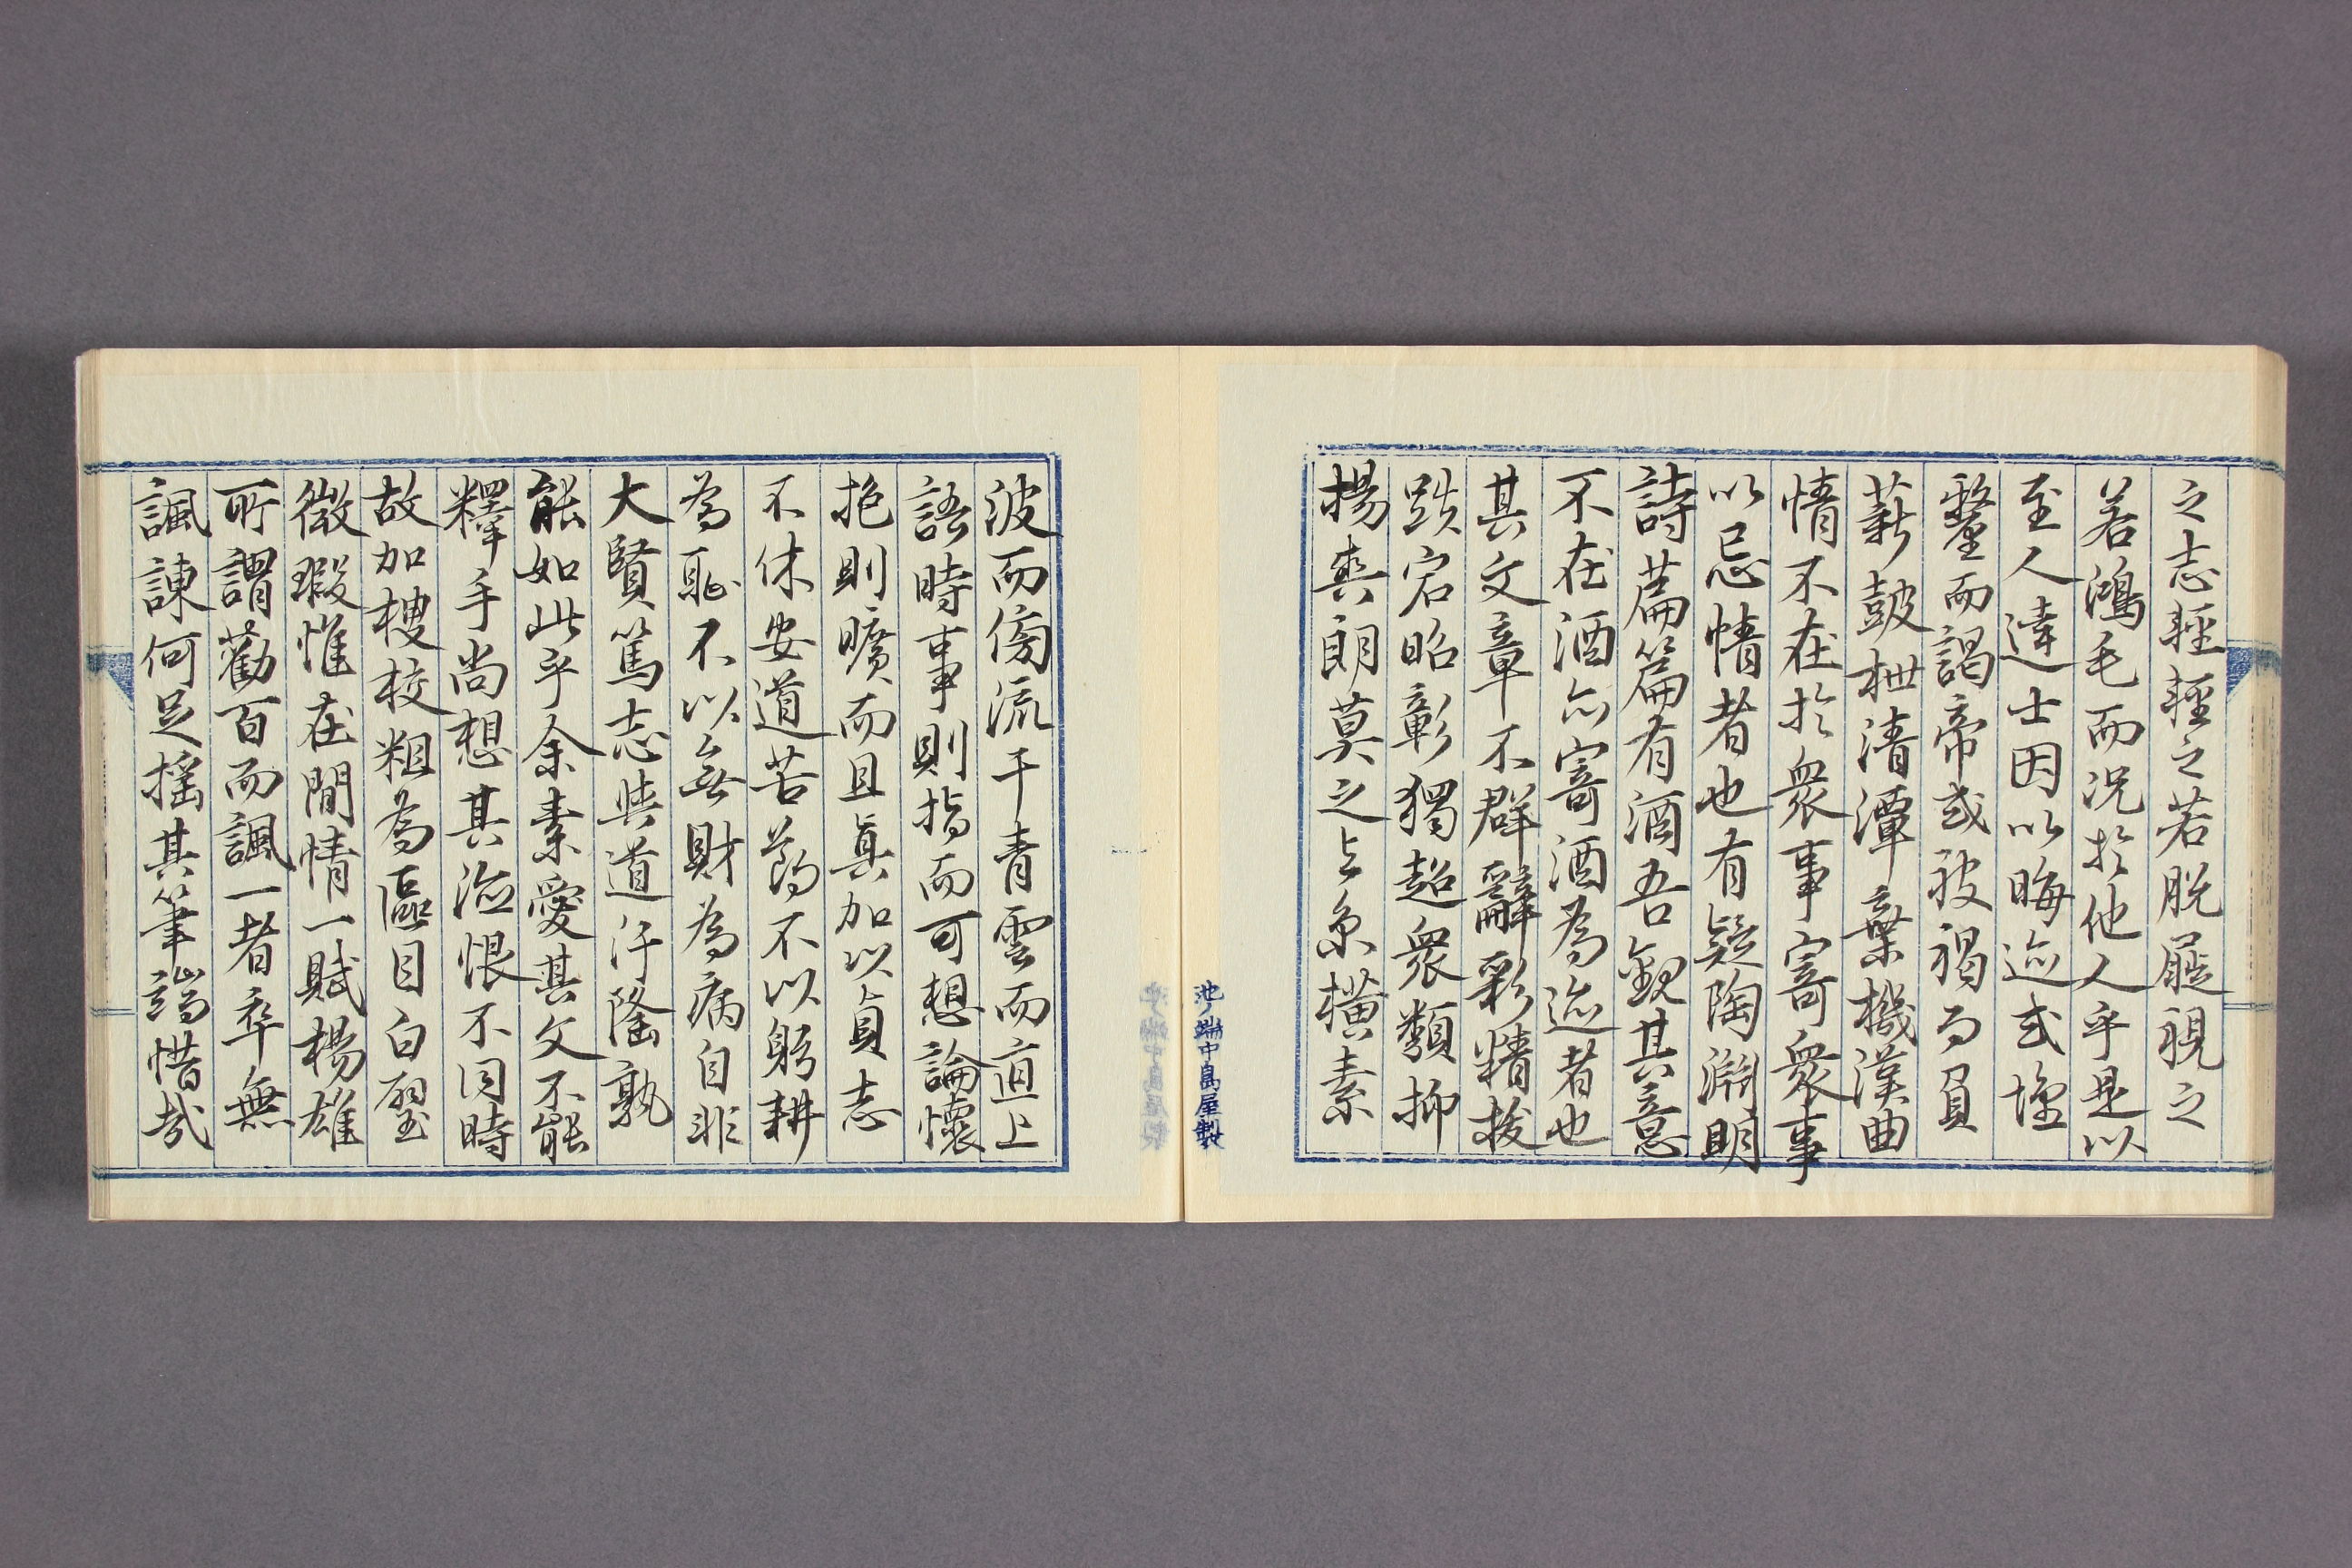 之志輕輕之若脫屣視之
若鴻毛而況於他人乎是以
至人達士因以晦迹或懷
釐而謁帝或被褐而負
薪鼓枻清潭棄機漢曲
情不在於衆事寄衆事
以忘情者也有疑陶淵明
詩篇篇有酒吾觀其意
不在酒亦寄酒為迹者也
其文章不群辭彩精拔
跌宕昭彰獨超衆類抑
揚爽朗莫之与京橫素
池ノ端中島屋製
波而傍流干青雲而直上
語時事則指而可想論懷
抱則曠而且真加以貞志
不休安道苦節不以躬耕
為恥不以無財為病自非
大賢篤志與道汙隆孰
能如此乎余素愛其文不能
釋手尚想其德恨不同時
故加搜校粗為區目白璧
微瑕惟在閒情一賦楊雄
所謂勸百而諷一者卒無
諷諫何足搖其筆端惜哉